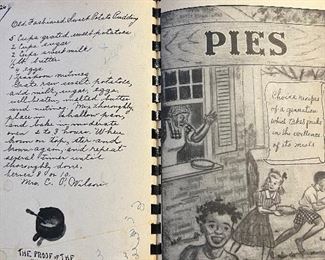 Old Fashioned Sweet Potato Pudding
5 Cups grated sweet potatoes
2 Cups sugar
2 Cups sweet milk
¼ lb. butter
4 eggs
1 Teaspoon nutmeg
Grate raw sweet potatoes,
add milk, sugar, eggs
well beaten, melted butter
and nutmeg. Mix thoroughly
place in shallow pan,
and bake in moderate
oven 2 to 3 hours. When
brown on top, stir and
brown again, and repeat
several times until
thoroughly done.
Serves 8 or 10.
Mrs. C. P. Wilson
THE PROOF OF THE
PIES
Choice recipes
of a generation
which takes pride
in the excellence
of its meals